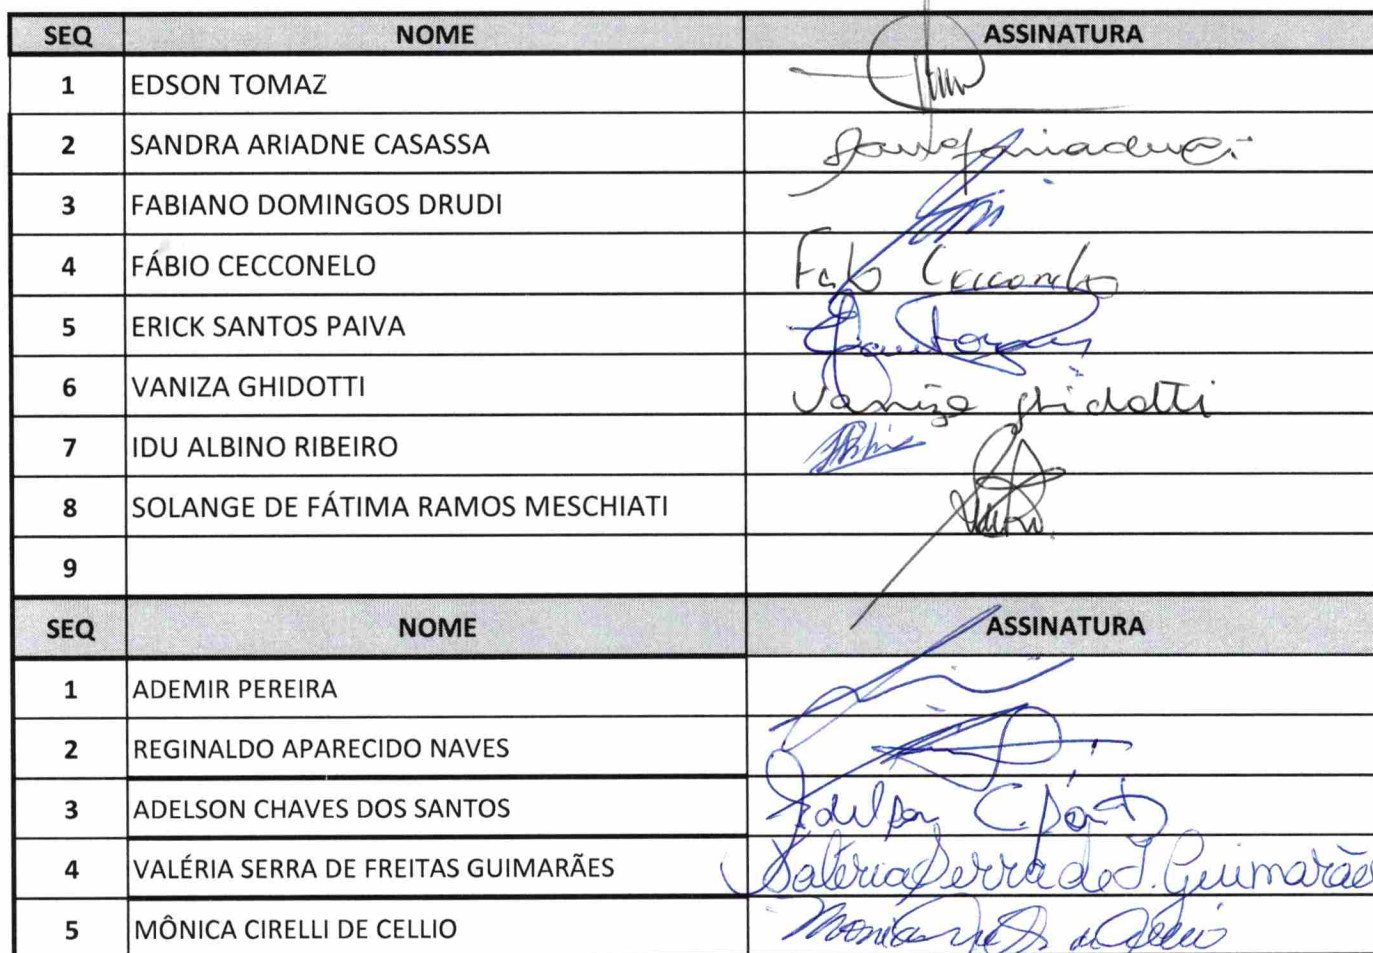 SEQ NOME ASSINATURA
1 EDSON TOMAZ
2 SANDRA ARIADNE CASASSA
3 FABIANO DOMINGOS DRUDI
4 FÁBIO CECCONELO Fabio Cecconelo
5 ERICK SANTOS PAIVA
6 VANIZA GHIDOTTI Vaniza ghidotti
7 IDU ALBINO RIBEIRO
8 SOLANGE DE FÁTIMA RAMOS MESCHIATI
9
SEQ NOME ASSINATURA
1 ADEMIR PEREIRA
2 REGINALDO APARECIDO NAVES
3 ADELSON CHAVES DOS SANTOS Adelson C.
4 VALÉRIA SERRA DE FREITAS GUIMARÃES Valéria Serra de F. Guimarães
5 MÔNICA CIRELLI DE CELLIO